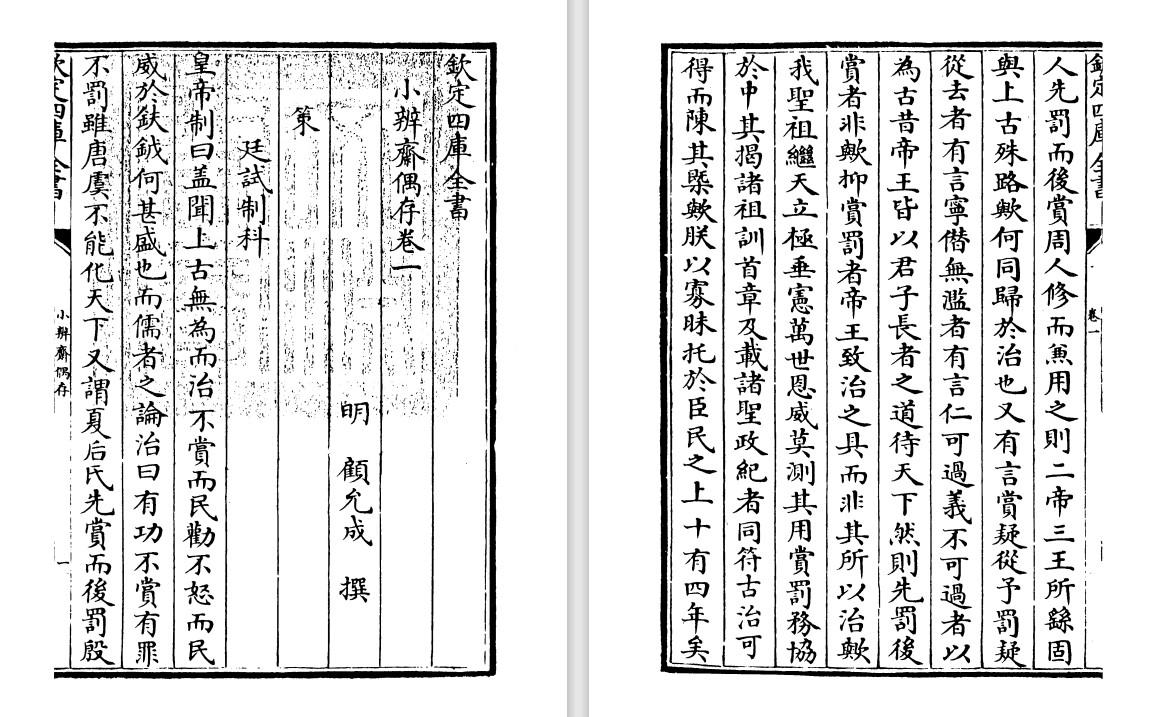 欽定四庫全書
小辨齋偶存卷一
明 顧允成 撰
策
廷試制科
皇帝制曰盖聞上古無為而治不賞而民勸不怒而民
威於鈇鉞何甚盛也而儒者之論治曰有功不賞有罪
不罰雖唐虞不能化天下又謂夏后氏先賞而後罰殷
欽定四庫全書 小辨齋偶存 一
欽定四庫全書 卷一
人先罰而後賞周人修而兼用之則二帝三王所繇固
與上古殊路歟何同歸於治也又有言賞疑從予罰疑
從去者有言寧僭無濫者有言仁可過義不可過者以
為古昔帝王皆以君子長者之道待天下然則先罰後
賞者非歟抑賞罰者帝王致治之具而非其所以治歟
我聖祖繼天立極垂憲萬世恩威莫測其用賞罰務協
於中其揭諸祖訓首章及載諸聖政紀者同符古治可
得而陳其槩歟朕以寡昧托於臣民之上十有四年矣